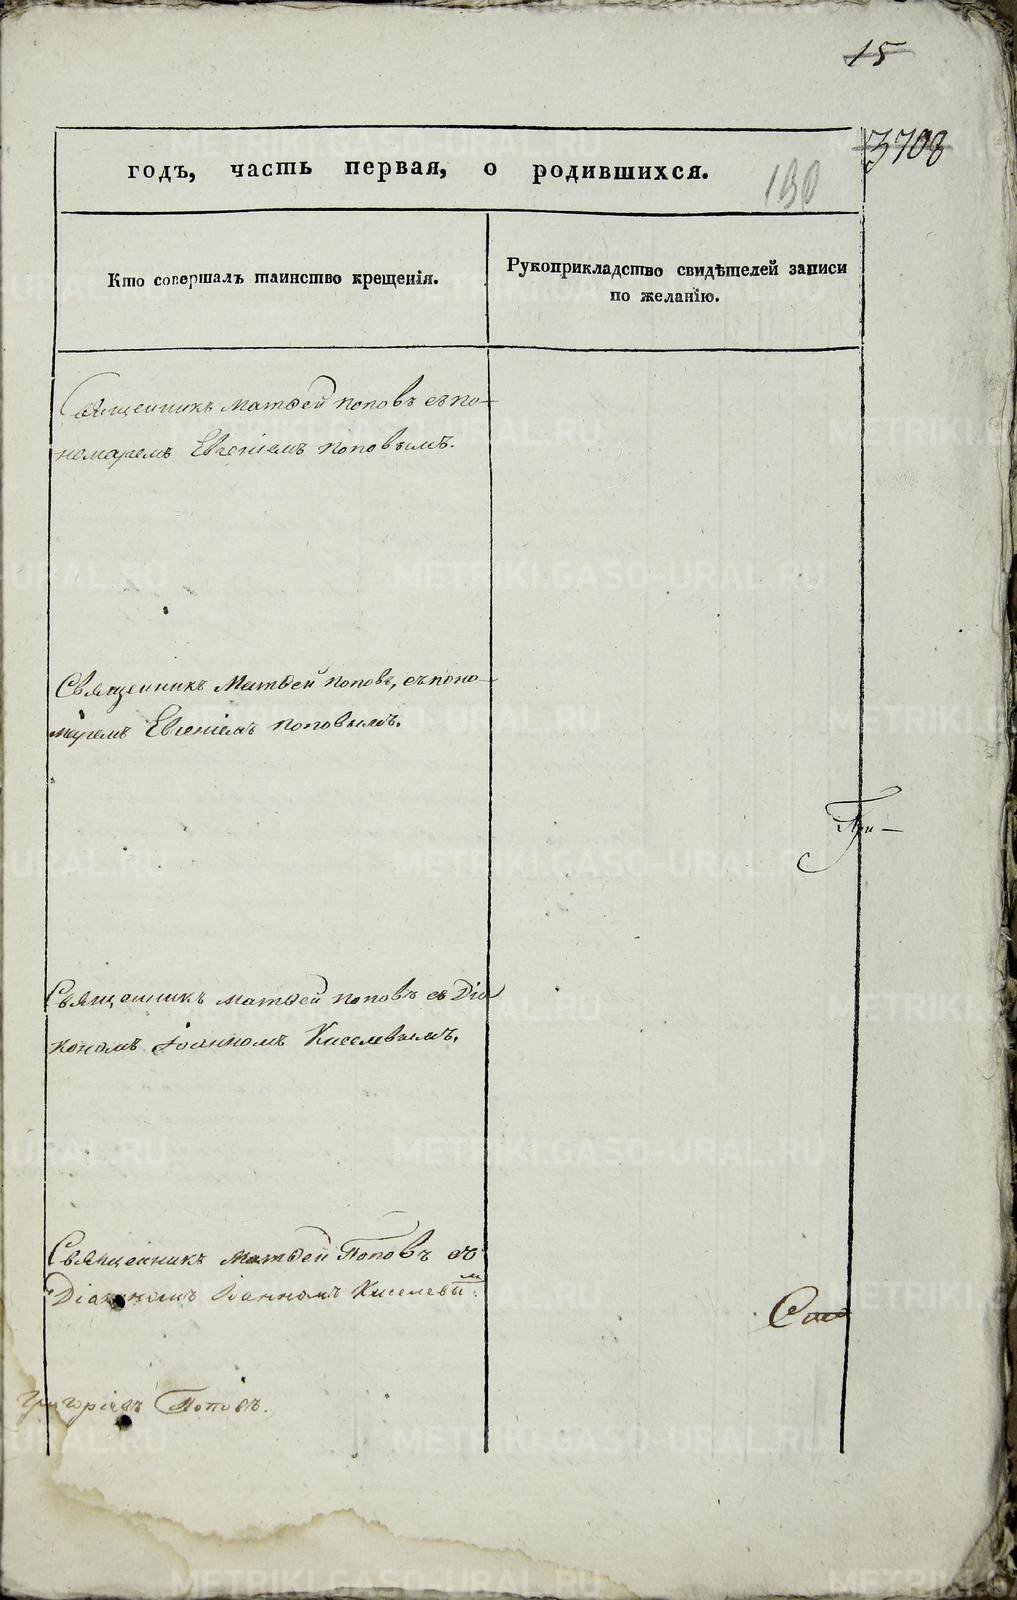 15
3708
годъ, часть первая, о родившихся.
190
Кто совершалъ таинство крещенія.
Рукоприкладство свидѣтелей записи
по желанію.
Священникъ Матѳей Поповъ съ по-
номаремъ Евгеніемъ Поповымъ.
Священникъ Матѳей Поповъ, съ поно-
маремъ Евгеніемъ Поповымъ.
При-
Священникъ Матѳей Поповъ съ Діа
кономъ Іоанномъ Киселевымъ.
Священникъ Матѳей Поповъ съ
Діакономъ Іоанномъ Киселевым.
Григорій Поповъ.
METRIKI.GASO-URAL.RU